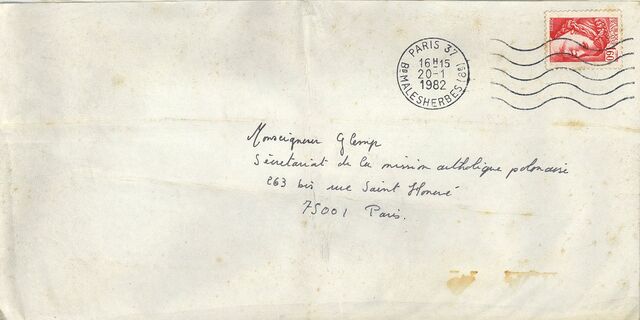 PARIS 37
16H15
20-1
1982
Bd MALESHERBES (8e)
Monseigneur Glemp
Sécretariat de la mission catholique polonaise
263 bis rue Saint Honoré
75001 Paris.